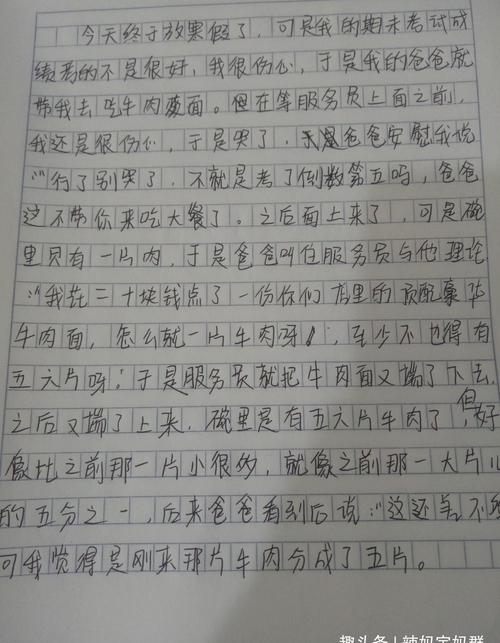 今天终于放寒假了，可是我的期末考试成
绩考的不是很好，我很伤心，于是我的爸爸就
带我去吃牛肉面。但在等服务员上面之前，
我还是很伤心，于是哭了，爸爸安慰我说
“行了别哭了，不就是考了倒数第五吗，爸爸
这不带你来吃大餐了。之后面上来了，可是碗
里只有一片肉，于是爸爸叫住服务员与他理论
“我在二十块钱点了一份你们店里的豪华
牛肉面，怎么就一片牛肉呀！，至少不也得有
五六片呀；于是服务员就把牛肉面又端了下去，
之后又端了上来，碗里是有五六片牛肉了，但好
像比之前那一片小很多，就像之前那一大片儿
的五分之一，后来爸爸看到后说：“这还差不多
可我觉得是刚来那片牛肉分成了五片。
趣头条 | 辣妈宝妈群